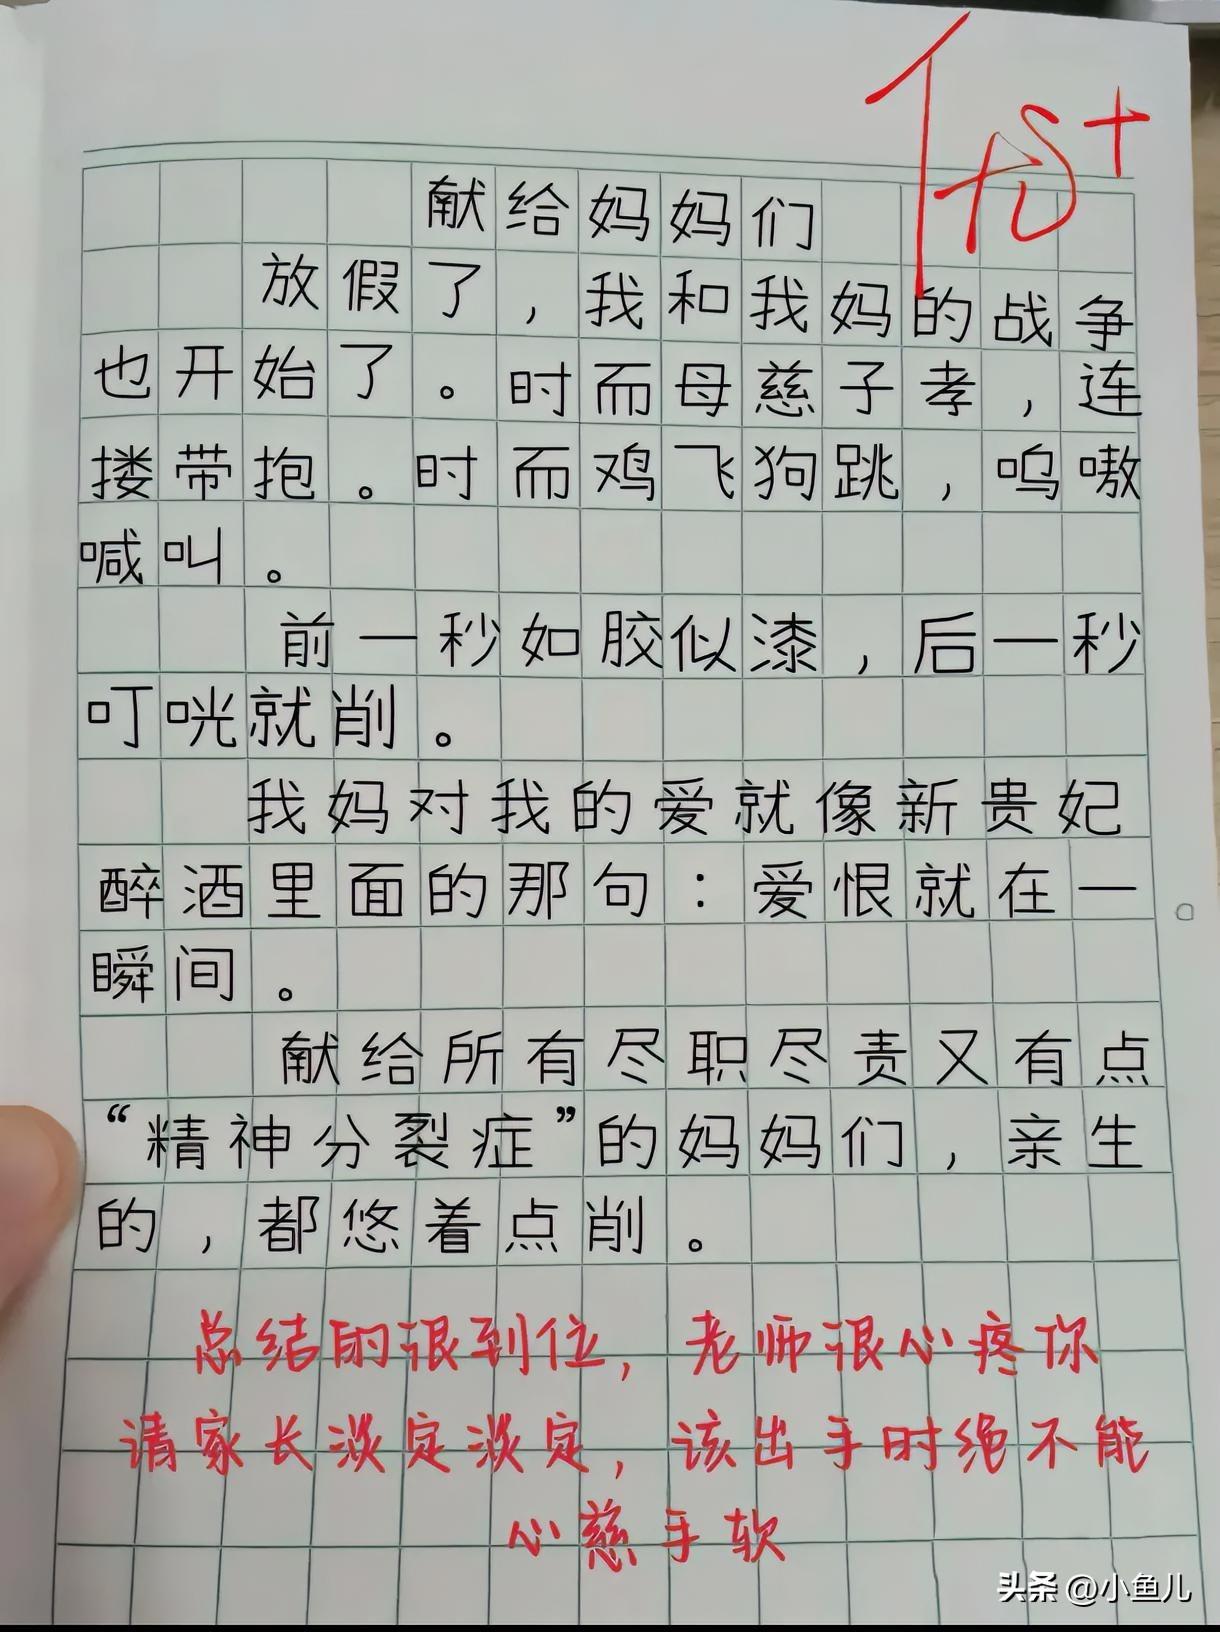 优+
献给妈妈们
放假了，我和我妈的战争
也开始了。时而母慈子孝，连
搂带抱。时而鸡飞狗跳，呜嗷
喊叫。
前一秒如胶似漆，后一秒
叮咣就削。
我妈对我的爱就像新贵妃
醉酒里面的那句：爱恨就在一
瞬间。
献给所有尽职尽责又有点
“精神分裂症”的妈妈们，亲生
的，都悠着点削。
总结的很到位，老师很心疼你
请家长淡定淡定，该出手时绝不能
心慈手软
头条 @小鱼儿